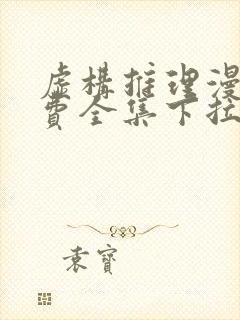 虛構推理漫
費全集下拉
袁寶